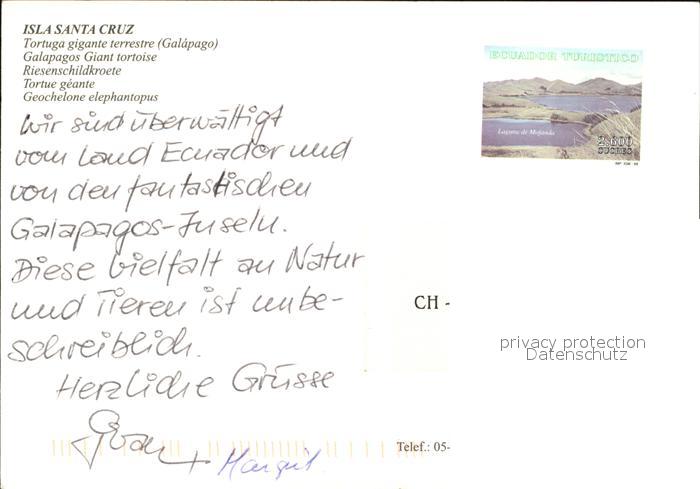 ISLA SANTA CRUZ
Tortuga gigante terrestre (Galápago)
Galapagos Giant tortoise
Riesenschildkroete
Tortue géante
Geochelone elephantopus
ECUADOR TURISTICO
Laguna de Mojanda
2.600
SUCRES
Wir sind überwältigt
vom Land Ecuador und
von den fantastischen
Galapagos-Inseln.
Diese Vielfalt an Natur
und Tieren ist unbe-
schreiblich.
Herzliche Grüsse
+ Margrit
CH -
privacy protection
Datenschutz
Telef.: 05-